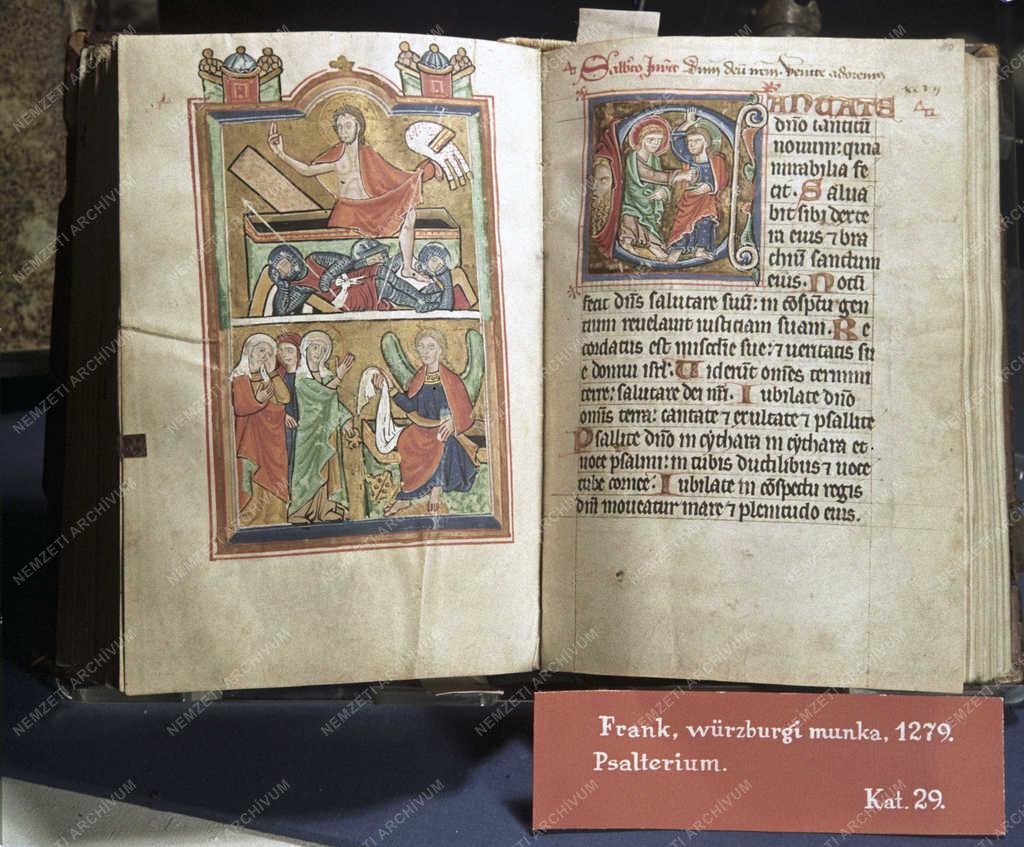 Sabbato Invit Dum deu nrm. Venite adoremus
CANTATE
dño canticũ
nouum: quia
mirabilia fe
cit. Salua
bit sibi dexte
ra eius ⁊ bra
chiũ sanctum
eius. Notũ
fecit dñs salutare suũ: in cõspectu gen
tium reuelauit iusticiam suam. Re
cordatus est miscđie sue: ⁊ ueritatis su
e domui isrł. Uiderũt omẽs termini
terre: salutare dei nrĩ. Iubilate dño
omĩs terra: cantate ⁊ exultate ⁊ psallite
Psallite dño in cythara in cythara et
uoce psalmi: in tubis ductilibus ⁊ uoce
tube cornee. Iubilate in cõspectu regis
dñi moueatur mare ⁊ plenitudo eius.
Frank, würzburgi munka, 1279.
Psalterium.
Kat. 29.
NEMZETI ARCHÍVUM